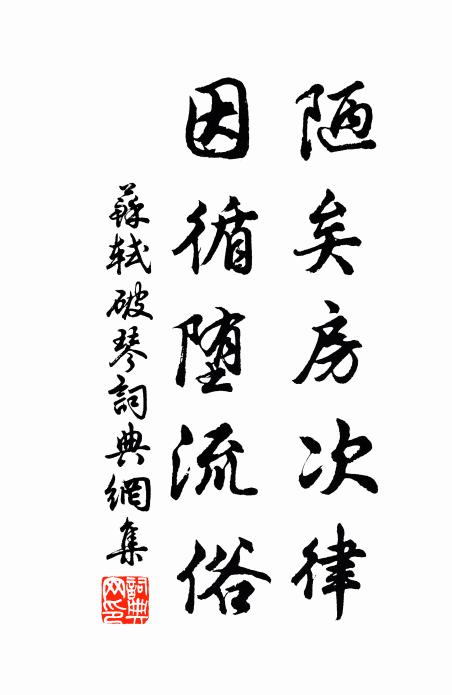 陋矣房次律
因循堕流俗
蘇軾破琴詞典網集
詞典网印